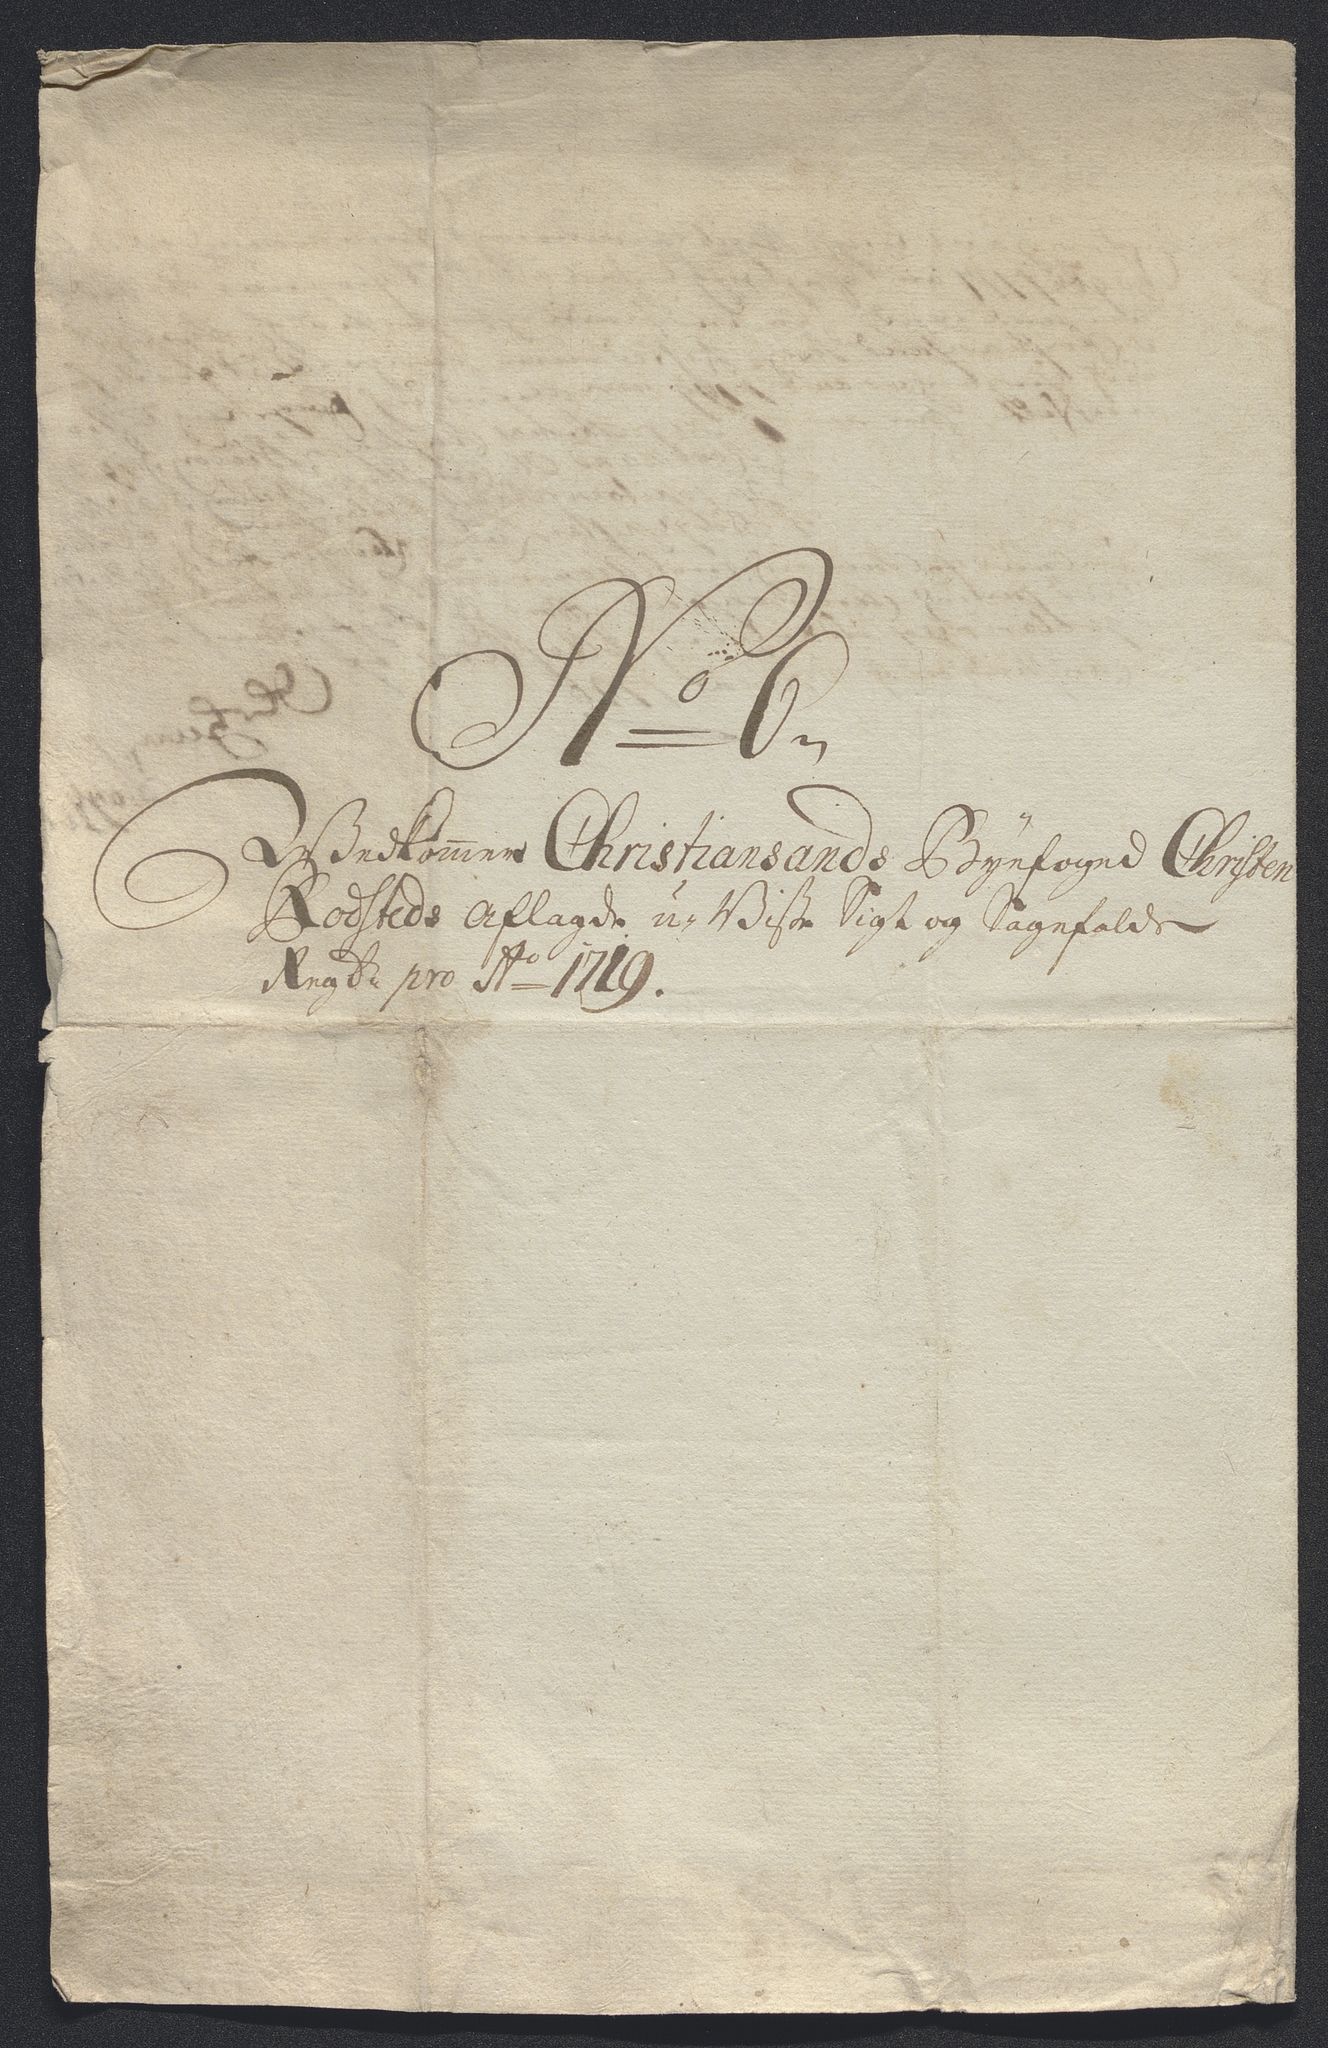 No 6
Vedkommer Christiansands Byefoged Christen
Rodsteds aflagde u-Visse Sigt og Sagefalds
Regsk: pro Ao 1719.